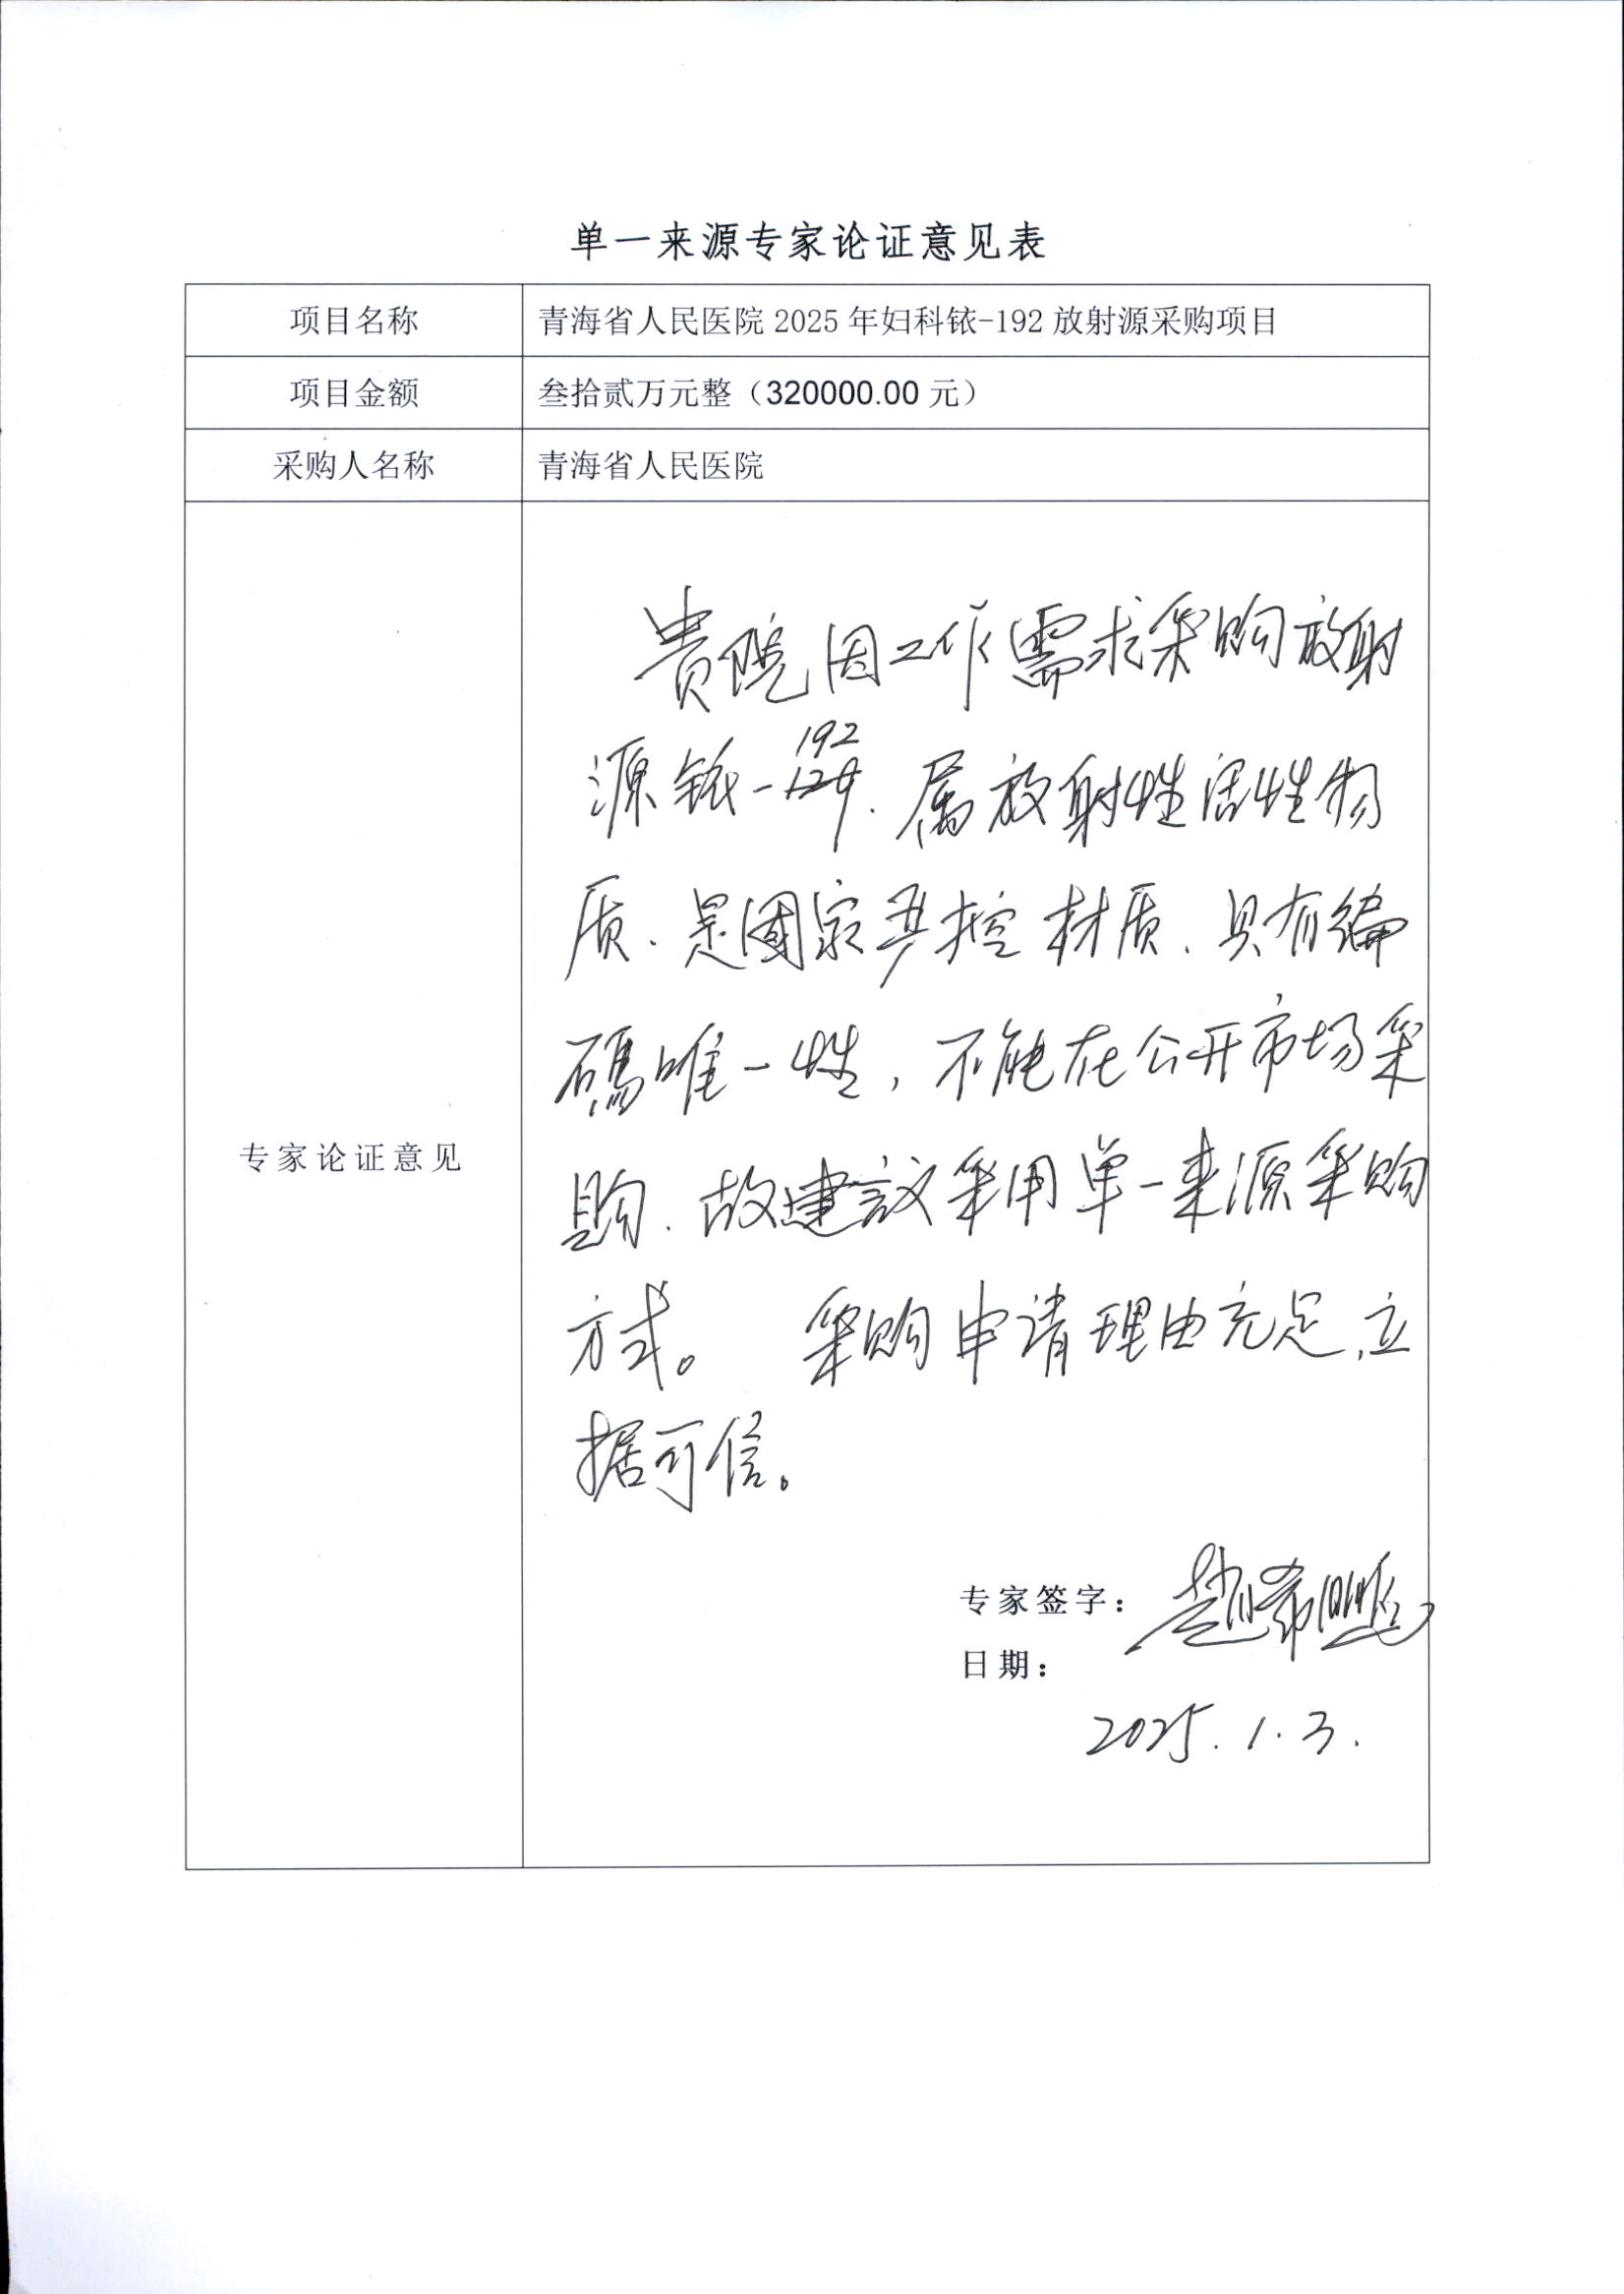 单一来源专家论证意见表
项目名称 青海省人民医院 2025 年妇科铱-192 放射源采购项目
项目金额 叁拾贰万元整（320000.00 元）
采购人名称 青海省人民医院
专家论证意见
贵院因工作需求采购放射
192
源铱-124、属放射性活性物
质、是国家严控材质、具有编
码唯一性，不能在公开市场采
购、故建议采用单一来源采购
方式。 采购申请理由充足、立
据可信。
专家签字：
日期：
2025.1.3.